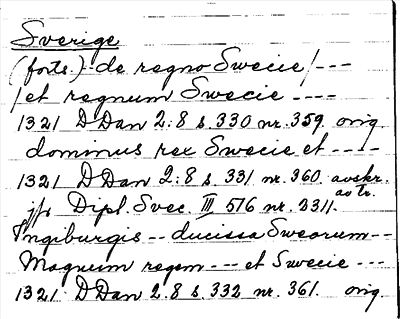 Sverige
(forts.) - de regno Swecie/ ---
/et regnum Swecie ----
1321 DDan 2:8 s. 330 nr. 359. orig.
dominus rex Swecie et ----
1321 DDan 2:8 s. 331 nr. 360. avskr.
av tr.
jfr Dipl. Svec. III 576 nr. 2311.
Ingiburgis -- ducissa Sweorum --
Magnum regem --- et Swecie ---
1321 DDan 2:8 s. 332 nr. 361. orig.